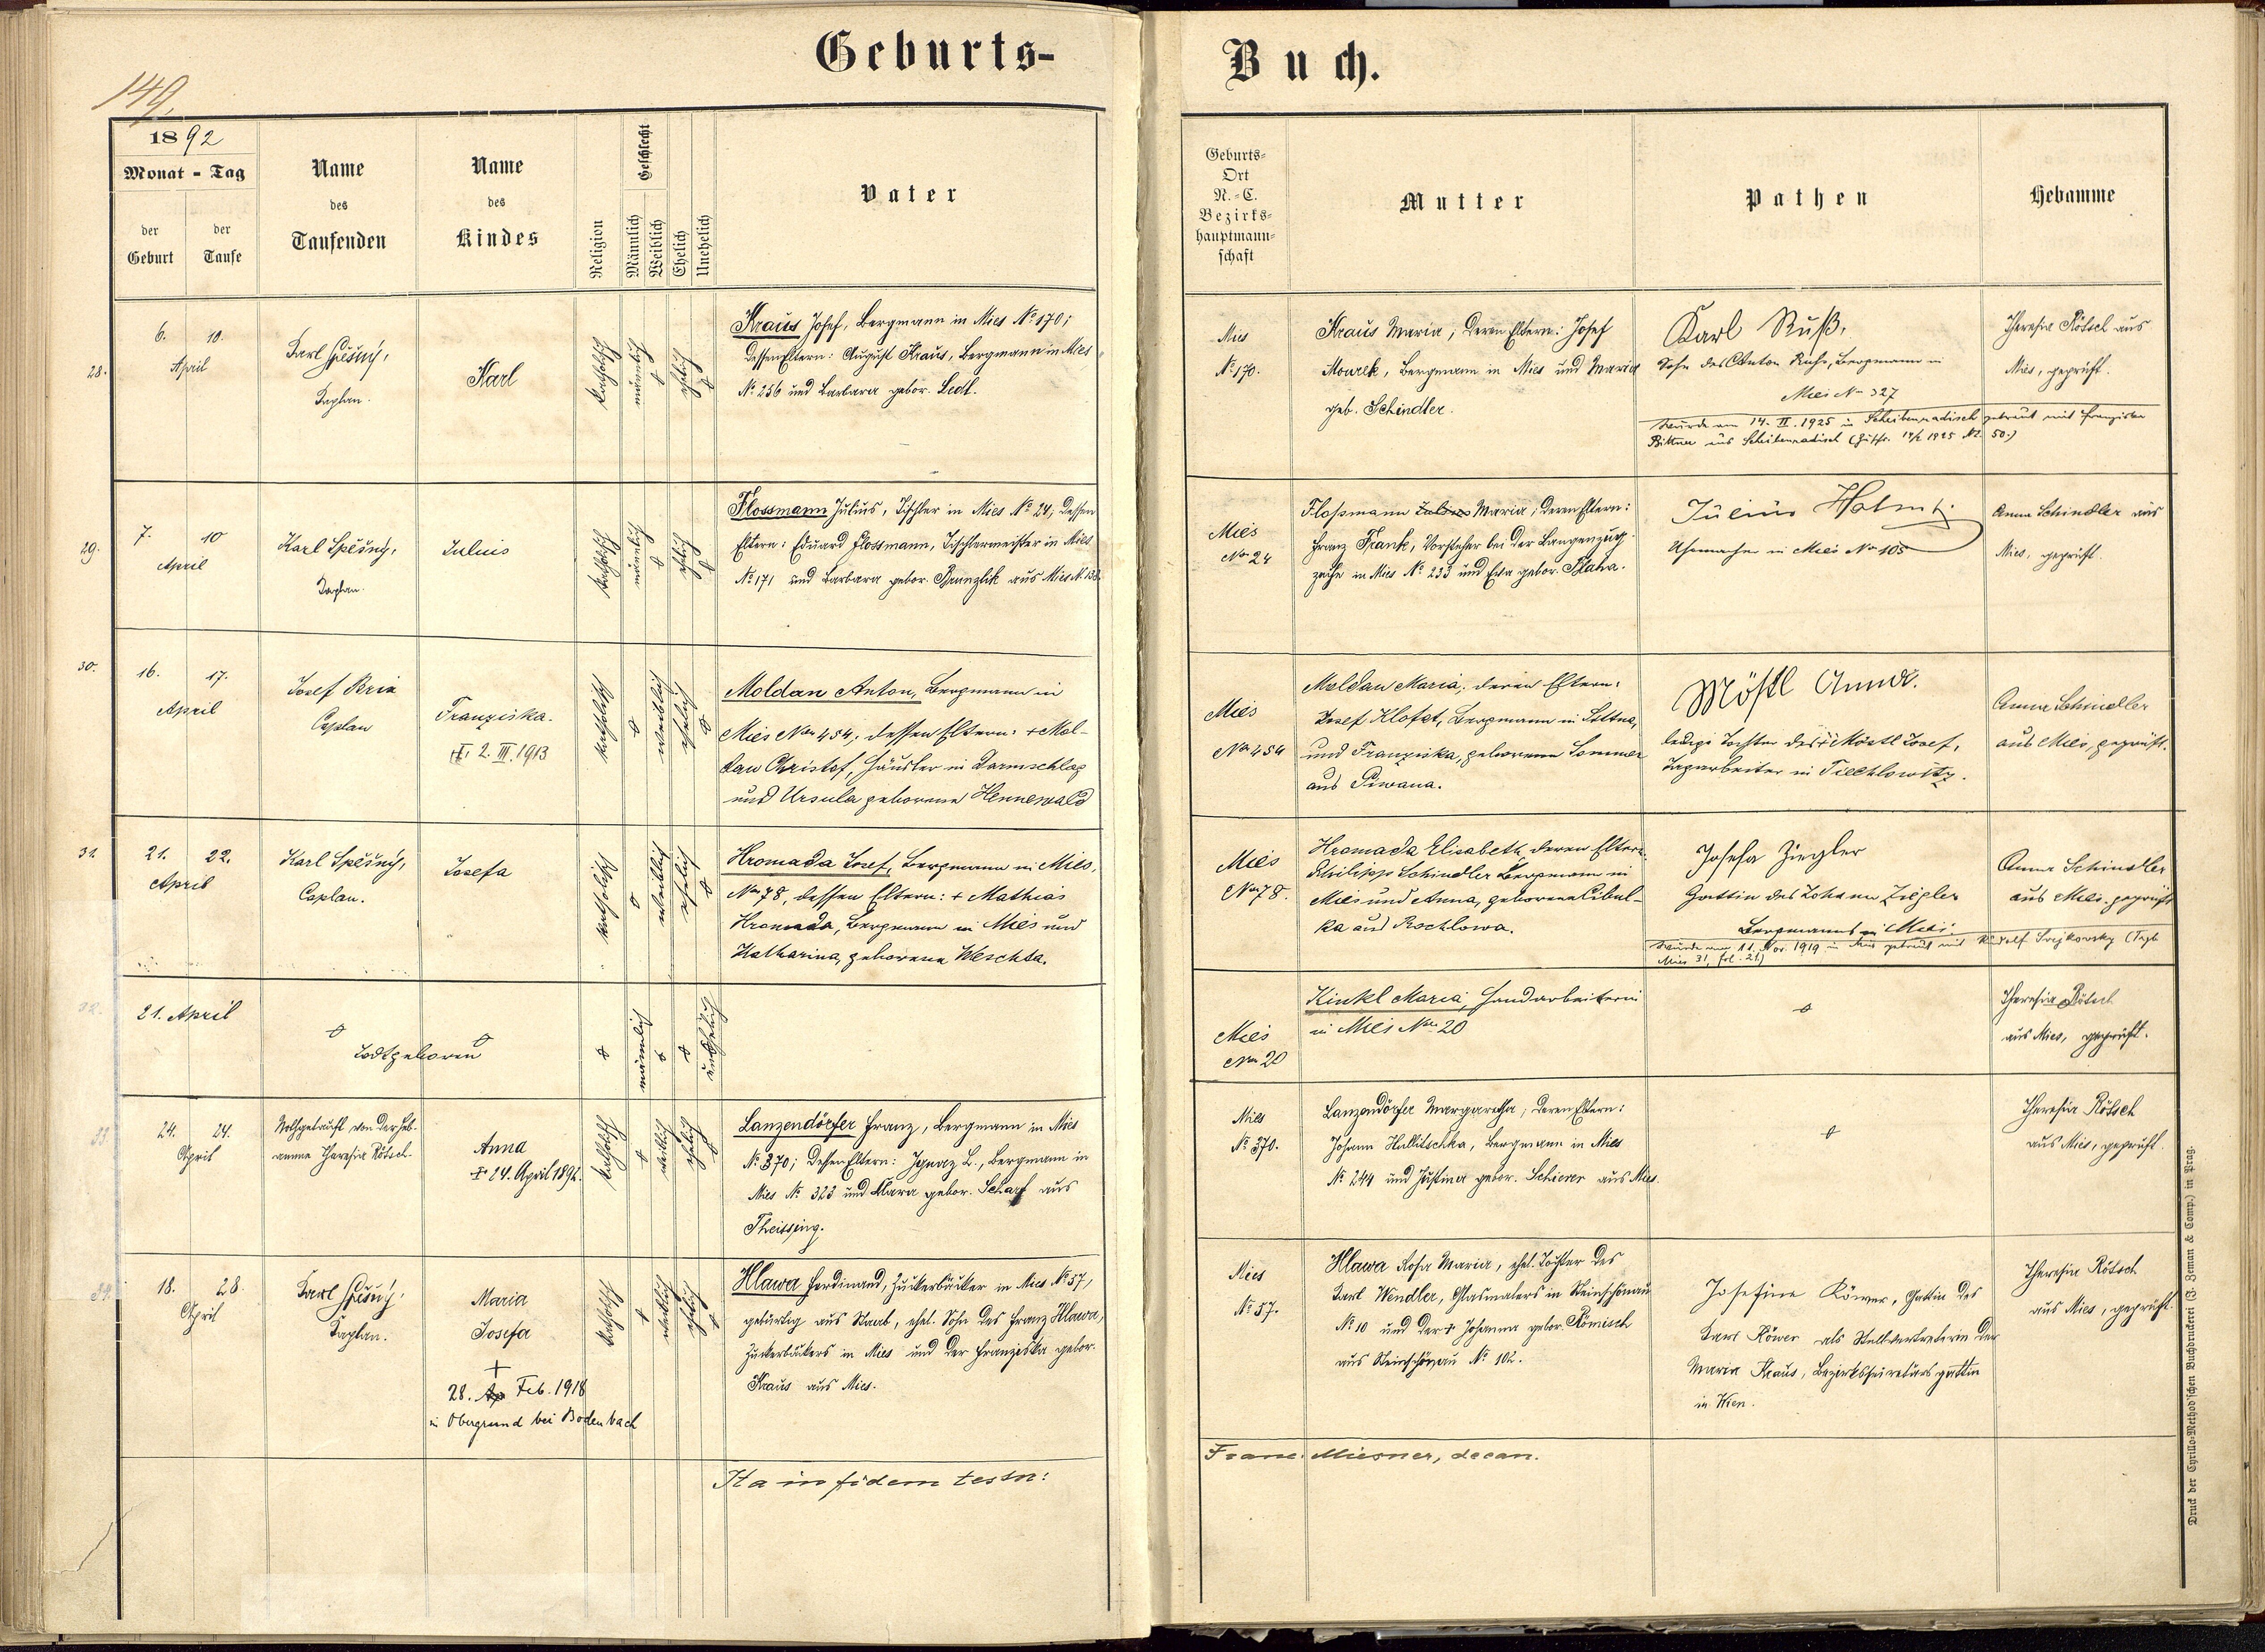 Geburts-
Buch.
149.
1892
Monat - Tag
der Geburt
der Taufe
Name des Taufenden
Name des Kindes
Religion
Geschlecht
Männlich
Weiblich
Ehelich
Unehelich
Vater
Geburts-
Ort
N.-C.
Bezirks-
hauptmann-
schaft
Mutter
Pathen
Hebamme
28.
6. 10.
April
Karl Spěšný,
Kaplan.
Karl
katholisch
männlich
ehelich
Kraus Josef, Bergmann in Mies No 170;
dessen Eltern: August Kraus, Bergmann in Mies
No 256 und Barbara gebor. Sedl.
Mies
No 170.
Kraus Maria; deren Eltern: Josef
Mourek, Bergmann in Mies und Maria
geb. Schindler.
Karl Ruß,
Sohn des Anton Ruß, Bergmann in
Mies No 327
wurde am 14. II. 1925 in Scheibenradisch getraut mit Franziska
Bittner aus Scheibenradisch
Theresia Rötsch aus
Mies, geprüft.
29.
7. 10
April
Karl Spěšný,
Kaplan.
Julius
katholisch
männlich
ehelich
Flossmann Julius, Tischler in Mies No 24; dessen
Eltern: Eduard Flossmann, Tischlermeister in Mies
No 171 und Barbara gebor. Branzlik aus Mies No 138.
Mies
No 24
Flossmann Julius Maria; deren Eltern:
Franz Frank, Vorsteher bei der Langenzug-
zeche in Mies No 233 und Eva gebor. Blaha.
Julius
Uhrmacher in Mies No 105
Anna Schindler aus
Mies, geprüft.
30.
16. 17.
April
Josef Brix
Caplan
Franziska.
† 2. III. 1913
katholisch
weiblich
ehelich
Moldan Anton, Bergmann in
Mies No 454; dessen Eltern: + Mol-
dan Christof, Häusler in Darmschlag
und Ursula geborene Hennewald
Mies
No 454
Moldan Maria, deren Eltern:
Josef Klofet, Bergmann in Sittna,
und Franziska, geborene Sommer
aus Piwana.
Möstl Anna.
ledige Tochter des + Möstl Josef,
Tagarbeiter in Tiechlowitz.
Anna Schindler
aus Mies, geprüft.
31.
21. 22.
April
Karl Spěšný,
Caplan.
Josefa
katholisch
weiblich
ehelich
Hromada Josef, Bergmann in Mies,
No 78, dessen Eltern: + Mathias
Hromada, Bergmann in Mies und
Katharina, geborene Weschta.
Mies
No 78.
Hromada Elisabeth, deren Eltern:
Philipp Schindler Bergmann in
Mies und Anna, geborene Cibul-
ka aus Rochlowa.
Josefa Ziegler
Gattin des Johann Ziegler
Bergmanns in Mies.
wurde am 11. Nov. 1919 in Mies getraut mit Rudolf Svejkovsky
Mies 31, fol. 21)
Anna Schindler
aus Mies, geprüft
32.
21. April
Todtgeboren
männlich
unehelich
Mies
No 20
Kinkl Maria, Handarbeiterin
in Mies No 20
Theresia Rötsch
aus Mies, geprüft.
33.
24. 24.
April
Nothgetauft von der Heb-
amme Theresia Rötsch.
Anna
† 24. April 1892.
katholisch
weiblich
ehelich
Lanzendörfer Franz, Bergmann in Mies
No 370; dessen Eltern: Ignaz L., Bergmann in
Mies No 323 und Klara gebor. Scharf aus
Theissing.
Mies
No 370.
Lanzendörfer Margaretha; deren Eltern:
Johann Hallitschka, Bergmann in Mies
No 244 und Justina gebor. Schierer aus Mies.
Theresia Rötsch
aus Mies, geprüft.
34.
18. 28.
April
Karl Spěšný,
Kaplan.
Maria
Josefa
+
28. Ap Feb. 1918
in Obergrund bei Bodenbach
katholisch
weiblich
ehelich
Hlawa Ferdinand, Zuckerbäcker in Mies No 57,
gebürtig aus Staab, ehel. Sohn des Franz Hlawa,
Zuckerbäckers in Mies und der Franziska gebor.
Kraus aus Mies.
Mies
No 57.
Hlawa Rosa Maria, ehel. Tochter des
Karl Wendler, Glasmalers in Steinschönau
No 10 und der + Johanna gebor. Römisch
aus Steinschönau No 102.
Josefine Köwer, Gattin des
Karl Köwer als Stellvertreterin der
Maria Kraus, Bezirkssekretärs gattin
in Wien.
Theresia Rötsch
aus Mies, geprüft.
Ita in fidem testor:
Franc. Miesner, decan.
Druck der Cyrillo-Method'schen Buchdruckerei (J. Zeman & Comp.) in Prag.